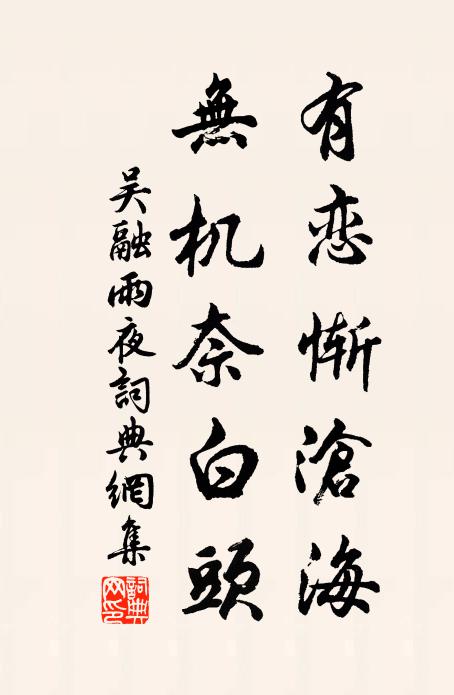 有恋惭滄海
無机奈白頭
吴融雨夜詞典網集
詞典網印